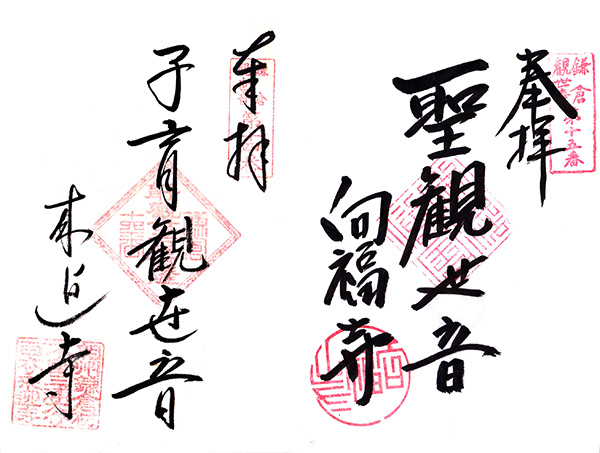 奉拝
鎌倉
観世音第十五番
聖観世音
向福寺
奉拝
子育観世音
来迎寺